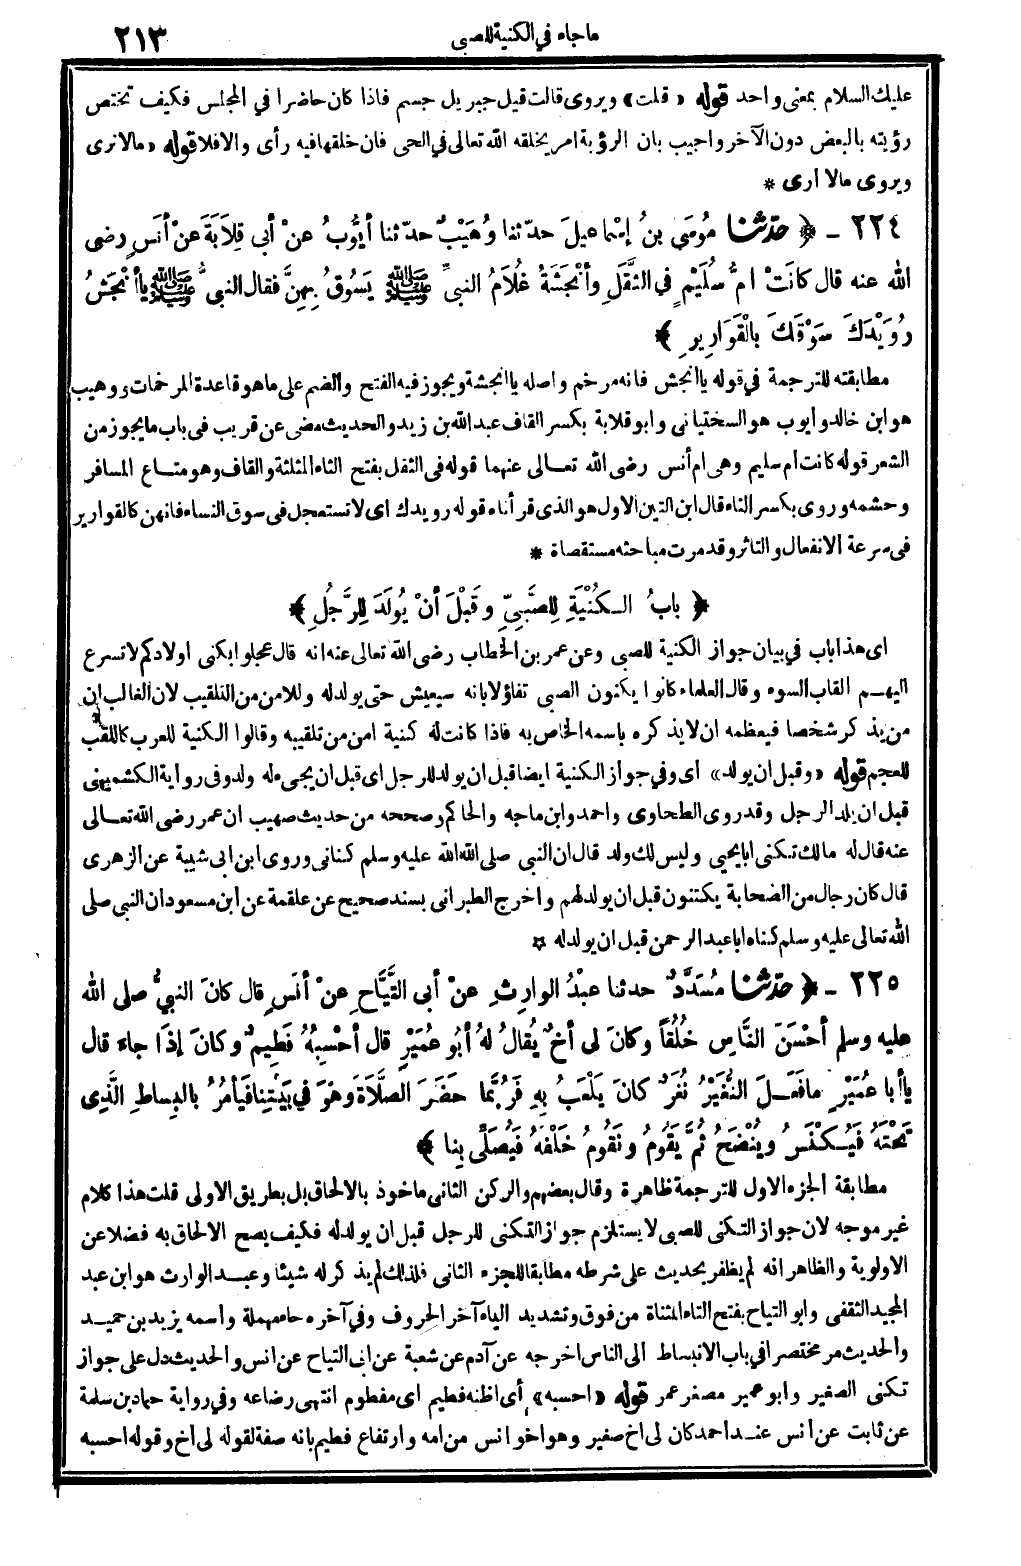 ماجاء في الكنية للصبي ٢١٣
عليك السلام بمعنى واحد قوله «قلت» ويروى قالت قيل جبريل جسم فاذا كان حاضرا في المجلس فكيف تختص
رؤيته بالبعض دون الآخر واجيب بان الرؤية امر يخلقه الله تعالى في الحى فان خلقها فيه رأى والا فلا قوله «مالا نرى
ويروى مالا أرى *
٢٢٤ - ﴿ حدّثنا مُوسَى بنُ إسْماعِيلَ حدّثنا وُهَيْبٌ حدّثنا أيُّوبُ عنْ أبي قِلاَبَةَ عنْ أنَسٍ رضى
الله عنه قال كانَتْ امُّ سُلَيْمٍ في الثَّقَلِ وأنْجَشَةُ غُلاَمُ النبيِّ ﷺ يَسُوقُ بِهِنَّ فقال النبيُّ ﷺ ياأنْجَشُ
رُوَيْدَكَ سَوْقَكَ بالْقَوَارِيرِ ﴾
مطابقته للترجمة في قوله ياأنجش فانه مرخم واصله ياأنجشة ويجوز فيه الفتح والضم على ما هو قاعدة المرخمات ووهيب
هو ابن خالد وأيوب هو السختيانى وابو قلابة بكسر القاف عبد الله بن زيد والحديث مضى عن قريب فى باب ما يجوز من
الشعر قوله كانت ام سليم وهى ام أنس رضى الله تعالى عنهما قوله فى الثقل بفتح الثاء المثلثة والقاف وهو متاع المسافر
وحشمه وروى بكسر الثاء قال ابن التين الاول هو الذى قرأناه قوله رويدك اى لا تستعجل فى سوق النساء فانهن كالقوارير
فى سرعة الانفعال والتاثر وقد مرت مباحثه مستقصاة *
﴿ بابُ الكُنْيَةِ لِلصَّبِيِّ وقَبْلَ أنْ يُولَدَ لِلرَّجُلِ ﴾
اى هذا باب في بيان جواز الكنية للصبى وعن عمر بن الخطاب رضى الله تعالى عنه انه قال عجلوا بكنى اولادكم لا تسرع
اليهم القاب السوء وقال العلماء كانوا يكنون الصبى تفاؤلا بانه سيعيش حتى يولد له وللامن من التلقيب لان الغالب ان
من يذكر شخصا فيعظمه ان لا يذكره باسمه الخاص به فاذا كانت له كنية امن من تلقيبه وقالوا الكنية للعرب كاللقب
للعجم قوله «وقبل ان يولد» أى وفي جواز الكنية ايضا قبل ان يولد للرجل اى قبل ان يجىء له ولد وفى رواية الكشميهنى
قبل ان يلد الرجل وقد روى الطحاوى واحمد وابن ماجه والحاكم وصححه من حديث صهيب ان عمر رضى الله تعالى
عنه قال له مالك تكنى ابا يحيى وليس لك ولد قال ان النبى صلى الله الله عليه وسلم كنانى وروى ابن ابى شيبة عن الزهرى
قال كان رجال من الصحابة يكتنون قبل ان يولد لهم واخرج الطبرانى بسند صحيح عن علقمة عن ابن مسعود ان النبى صلى
الله تعالى عليه وسلم كناه ابا عبد الرحمن قبل ان يولد له *
٢٢٥ - ﴿ حدّثنا مُسَدَّدٌ حدثنا عبْدُ الوارِثِ عنْ أبى التَّيَّاحِ عنْ أنَسٍ قال كانَ النبىُّ صلى الله
عليه وسلم أحْسَنَ النَّاسِ خُلُقاً وكانَ لى أخٌ يُقالُ لهُ أبُو عُمَيْرٍ قال أحْسِبُهُ فَطِيمٌ وكانَ إذَا جاءَ قال
ياأبا عُمَيْرٍ مافَعَلَ النُّغَيْرُ نُغَرٌ كانَ يَلْعَبُ بِهِ فَرُبَّما حضَرَ الصَّلاَةَ وهُوَ في بَيْتِنا فيَأْمُرُ بالبِساطِ الَّذِى
تَحْتَهُ فَيُكْنَسُ ويُنْضَحُ ثُمَّ يَقُومُ ونَقُومُ خَلْفَهُ فَيُصَلِّى بِنا ﴾
مطابقة الجزء الاول للترجمة ظاهرة وقال بعضهم والركن الثانى ماخوذ بالالحاق بل بطريق الاولى قلت هذا كلام
غير موجه لان جواز التكنى للصبى لا يستلزم جواز التكنى للرجل قبل ان يولد له فكيف يصح الالحاق به فضلا عن
الاولوية والظاهر انه لم يظفر بحديث على شرطه مطابقا للجزء الثانى فلذلك لم يذكر له شيئا وعبد الوارث هو ابن عبد
المجيد الثقفى وابو التياح بفتح التاء المثناة من فوق وتشديد الياء آخر الحروف وفي آخره حاء مهملة واسمه يزيد بن حميد
والحديث مر مختصرا في باب الانبساط الى الناس اخرجه عن آدم عن شعبة عن ابى التياح عن انس والحديث دل على جواز
تكنى الصغير وابو عمير مصغر عمر قوله «احسبه» أى اظنه فطيم اى مفطوم انتهى رضاعه وفي رواية حماد بن سلمة
عن ثابت عن أنس عند احمد كان لى اخ صغير وهو اخو انس من امه وارتفاع فطيم بانه صفة لقوله لى أخ وقوله احسبه